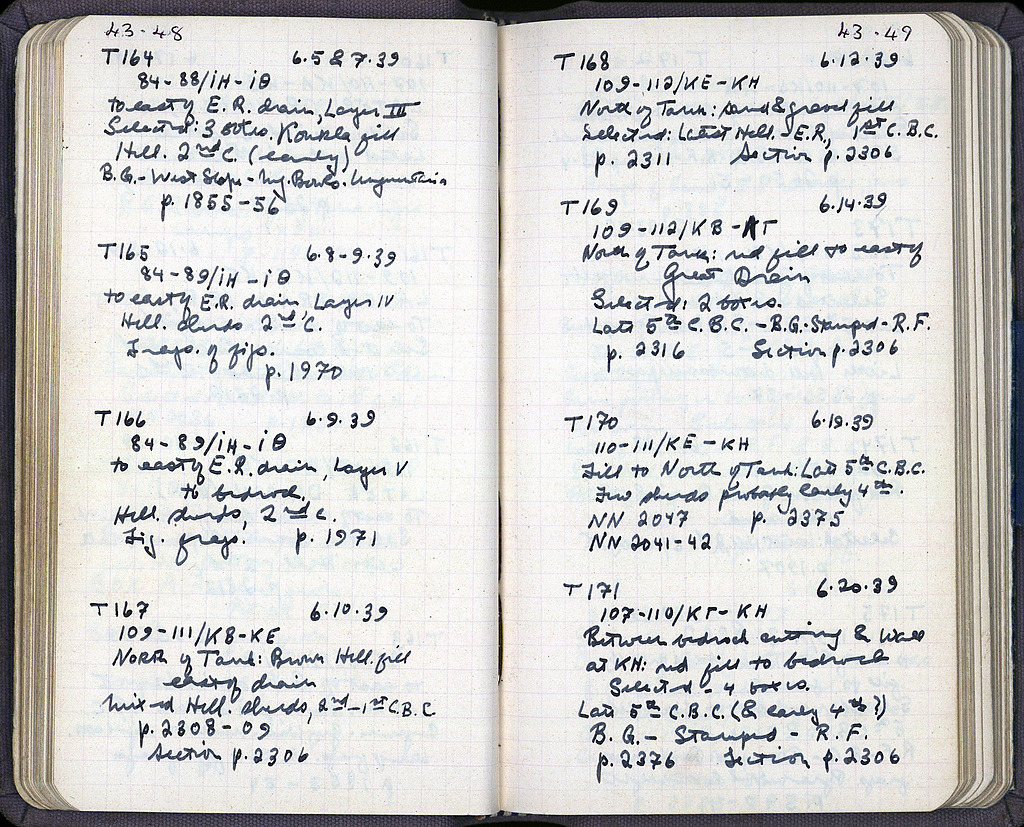 43-48
T164 6.5 & 7.39
84-88/ΙΗ-ΙΘ
to east of E.R. drain, Layer III
Selected: 3 boxes. Koukla fill
Hell. 2nd C. (early)
B.G.-West Slope-Meg. Bowls.
p. 1855-56
T165 6.8-9.39
84-89/ΙΗ-ΙΘ
to east of E.R. drain, Layer IV
Hell. sherds 2nd C.
Frags. of figs.
p. 1970
T166 6.9.39
84-89/ΙΗ-ΙΘ
to east of E.R. drain, Layer V
to bedrock.
Hell. sherds, 2nd C.
Fig. frags. p. 1971
T167 6.10.39
109-111/ΚΒ-ΚΕ
North of Tank: Brown Hell. fill
east of drain
Mixed Hell. sherds, 2nd-1st C.B.C.
p. 2308-09
Section p. 2306
43-49
T168 6.12.39
109-112/ΚΕ-ΚΗ
North of Tank: sand & gravel fill
Selected: Latest Hell.-E.R., 1st C.B.C.
p. 2311 Section p. 2306
T169 6.14.39
109-112/ΚΒ-ΚΓ
North of Tank: red fill to east of
Great Drain
Selected: 2 boxes.
Late 5th C.B.C.-B.G.-Stamped-R.F.
p. 2316 Section p. 2306
T170 6.19.39
110-111/ΚΕ-ΚΗ
Fill to North of Tank: Late 5th C.B.C.
Two sherds probably early 4th.
NN 2047 p. 2375
NN 2041-42
T171 6.20.39
107-110/ΚΓ-ΚΗ
Between bedrock cutting & Wall
at ΚΗ: red fill to bedrock
Selected - 4 boxes.
Late 5th C.B.C. (& early 4th?)
B.G.- Stamped - R.F.
p. 2376 Section p. 2306